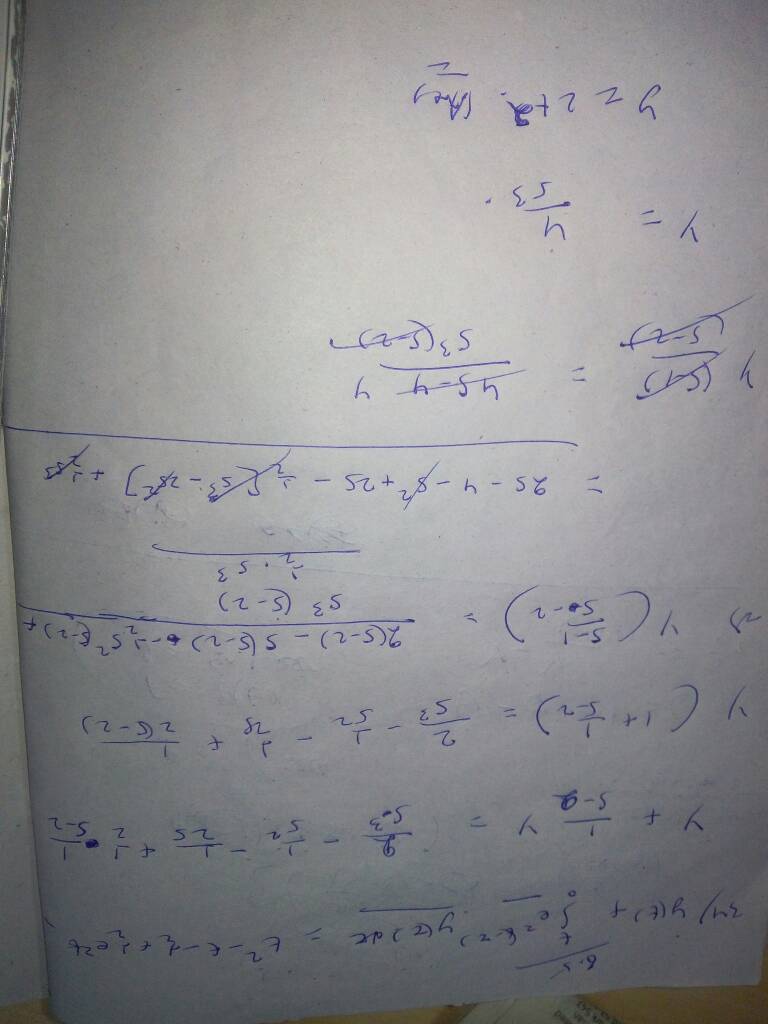 y(t) + ∫₀ᵗ e^{2(t-τ)} y(τ) dτ = t² - t - 1/2 + 1/2 e^{2t}
Y + 1/(s-2) Y = 2/s³ - 1/s² - 1/2s + 1/2 · 1/(s-2)
Y (1 + 1/(s-2)) = 2/s³ - 1/s² - 1/2s + 1/2(s-2)
⇒ Y ((s-1)/(s-2)) = (2(s-2) - s(s-2) - 1/2 s²(s-2) + 1/2 · s³) / (s³ (s-2))
= 2s - 4 - s² + 2s - 1/2 [s³ - 2s²] + 1/2 s³
Y (s-1)/(s-2) = 4s-4 4 / s³(s-2)
Y = 4/s³ .
y = 2t²